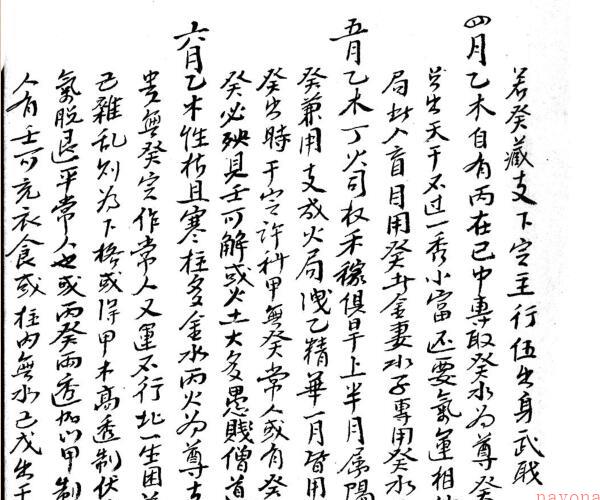 若癸藏支下定主行伍出身武职
四月乙木自有丙在巳中專取癸水为尊癸
出天干不过一秀小富还要氣運相
局此人盲目用癸金妻水子專用癸水
五月乙木丁火司权禾稼俱旱上半月属陽
癸兼用支成火局洩乙精華一月皆用
癸出時干定許科甲無癸常人或有癸
癸必殃見壬可解或火土太多愚賤僧道
六月乙木性枯且寒柱多金水丙火为尊
貴無癸定作常人又運不行北一生困
己雜乱则为下格或得甲木高透制伏
氣脱退平常人也或丙癸两透加以甲制
人有壬可充衣食或柱内無水己戊出干
nayona